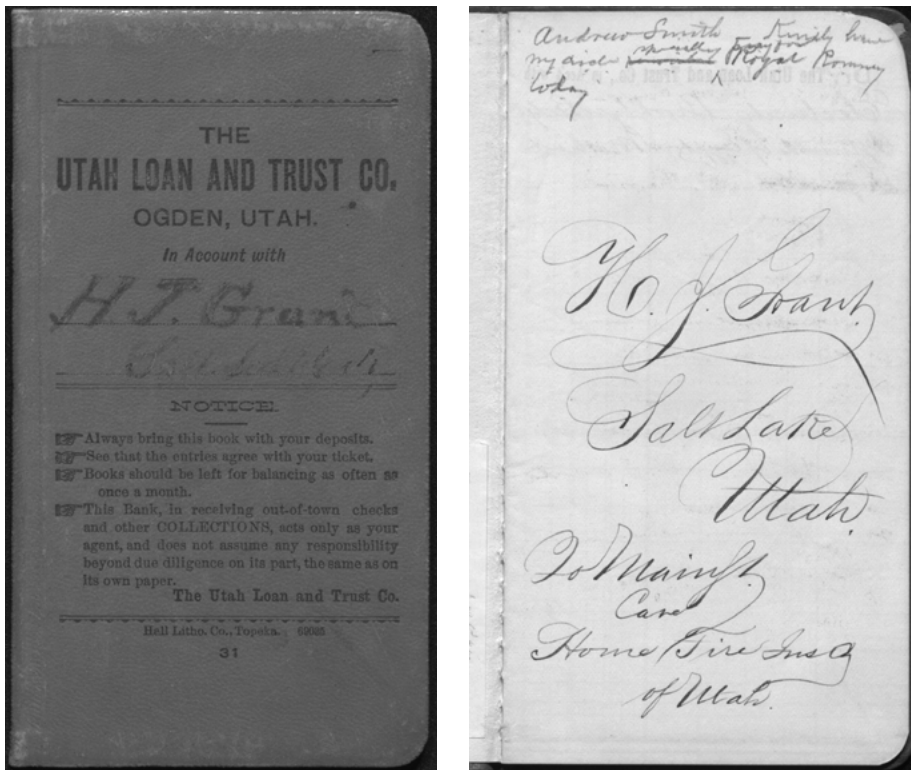 THE
UTAH LOAN AND TRUST CO.
OGDEN, UTAH.
In Account with
H. J. Grant
Salt Lake City
NOTICE.
Always bring this book with your deposits.
See that the entries agree with your ticket.
Books should be left for balancing as often as
once a month.
This Bank, in receiving out-of-town checks
and other COLLECTIONS, acts only as your
agent, and does not assume any responsibility
beyond due diligence on its part, the same as on
its own paper.
The Utah Loan and Trust Co.
Hall Litho. Co., Topeka.
31
Andrew Smith Kindly have
my Royal Romney
today
H. J. Grant.
Salt Lake
Utah.
20 Main St.
Care
Home Fire Ins Co
of Utah.